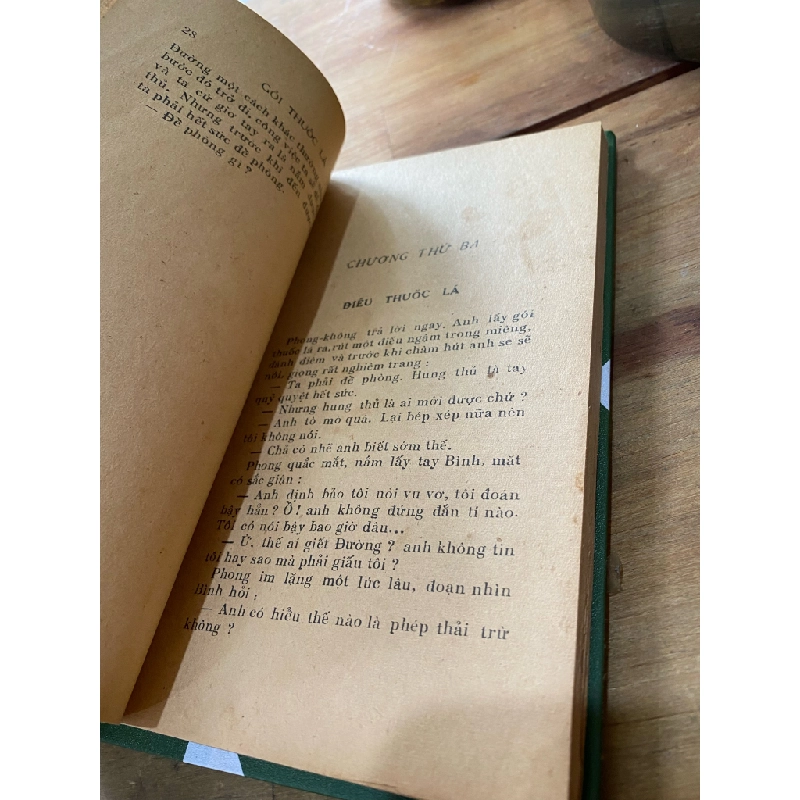 28
GÓI THUỐC LÁ
Đường một cách khác thường
bước đó trở đi, công việc ta sẽ
và ta cứ giơ tay ra là nắm
thủ. Nhưng trước khi đến
ta phải hết sức đề phòng.
— Đề phòng gì ?
CHƯƠNG THỨ BA
ĐIẾU THUỐC LÁ
Phong-không trả lời ngay. Anh lấy gói
thuốc lá ra, rút một điếu ngậm trong miệng,
đánh diêm và trước khi châm hút anh sẽ sẽ
nói, giọng rất nghiêm trang :
— Ta phải đề phòng. Hung thủ là tay
quỷ quyệt hết sức.
— Nhưng hung thủ là ai mới được chứ ?
— Anh tò mò quá. Lại bép xép nữa nên
tôi không nói.
— Chả có nhẽ anh biết sớm thế.
Phong quắc mắt, nắm lấy tay Bình, mặt
có sắc giận :
— Anh định bảo tôi nói vu vơ, tôi đoán
bậy hẳn ? Ồ! anh không đứng đắn tí nào.
Tôi có nói bậy bao giờ đâu...
— Ừ, thế ai giết Đường ? anh không tin
tôi hay sao mà phải giấu tôi ?
Phong im lặng một lúc lâu, đoạn nhìn
Bình hỏi :
— Anh có hiểu thế nào là phép thải trừ
không ?